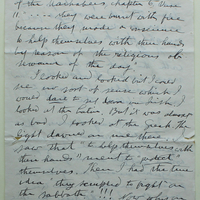 of the Maccabees chapter 6 verse
11 "..... they were burnt with fire
because they made a conscience
to help themselves with their hands
by reason of the religious ob-
servance of the day."
I looked and looked but I could
see no sort of sense which I
could have to put down in British. I
looked at the Latin. But it was almost
as bad. I looked at the Greek. The
light dawned on me there. I
saw that "to help themselves with
their hands" meant to "protect
themselves. Then I had the true
idea they scrupled to fight on
the sabbath!!!